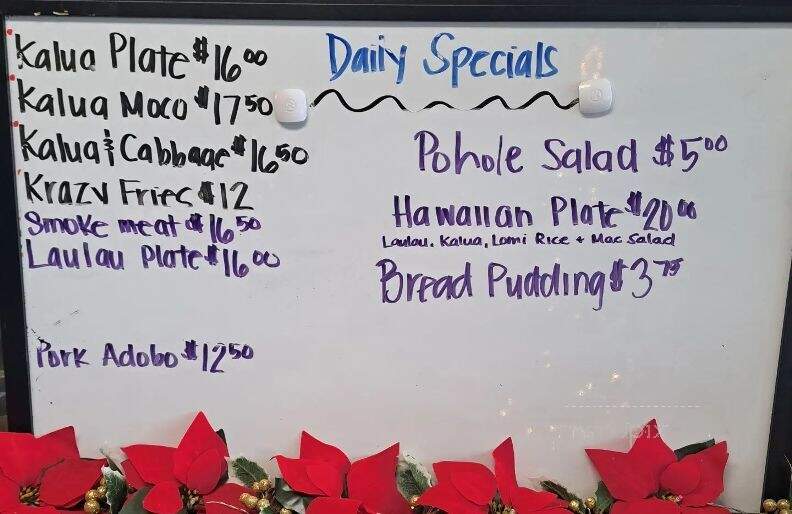 Kalua Plate $16.00
Kalua Moco $17.50
Kalua & Cabbage $16.50
Krazy Fries $12
Smoke meat $16.50
Laulau Plate $16.00
Pork Adobo $12.50
Daily Specials
Pohole Salad $5.00
Hawaiian Plate $20.00
Laulau, Kalua, Lomi Rice + Mac Salad
Bread Pudding $3.75